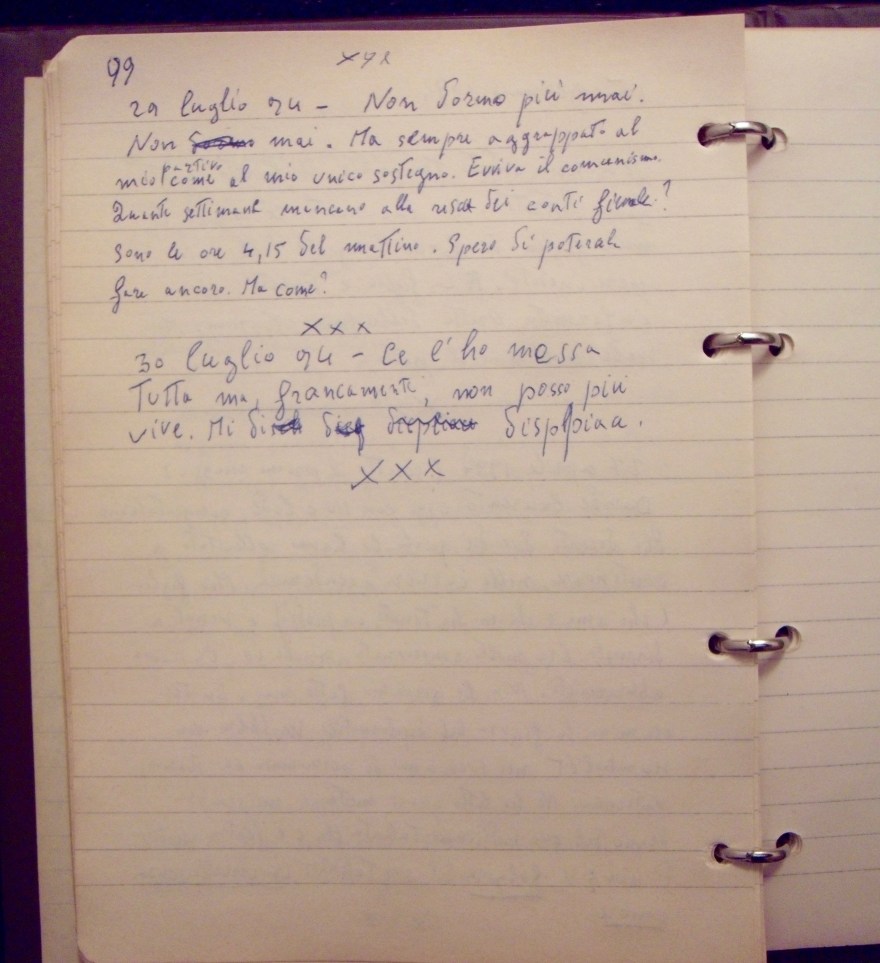 99
xxx
29 luglio 974 - Non dormo più mai.
Non mai. Ma sempre aggrappato al
partito
mio come al mio unico sostegno. Evviva il comunismo.
Quante settimane mancano alla resa dei conti finale?
Sono le ore 4,15 del mattino. Spero di potercela
fare ancora. Ma come?
xxx
30 luglio 974 - Ce l'ho messa
Tutta ma, francamente, non posso più
vive. Mi dispiaa.
XXX